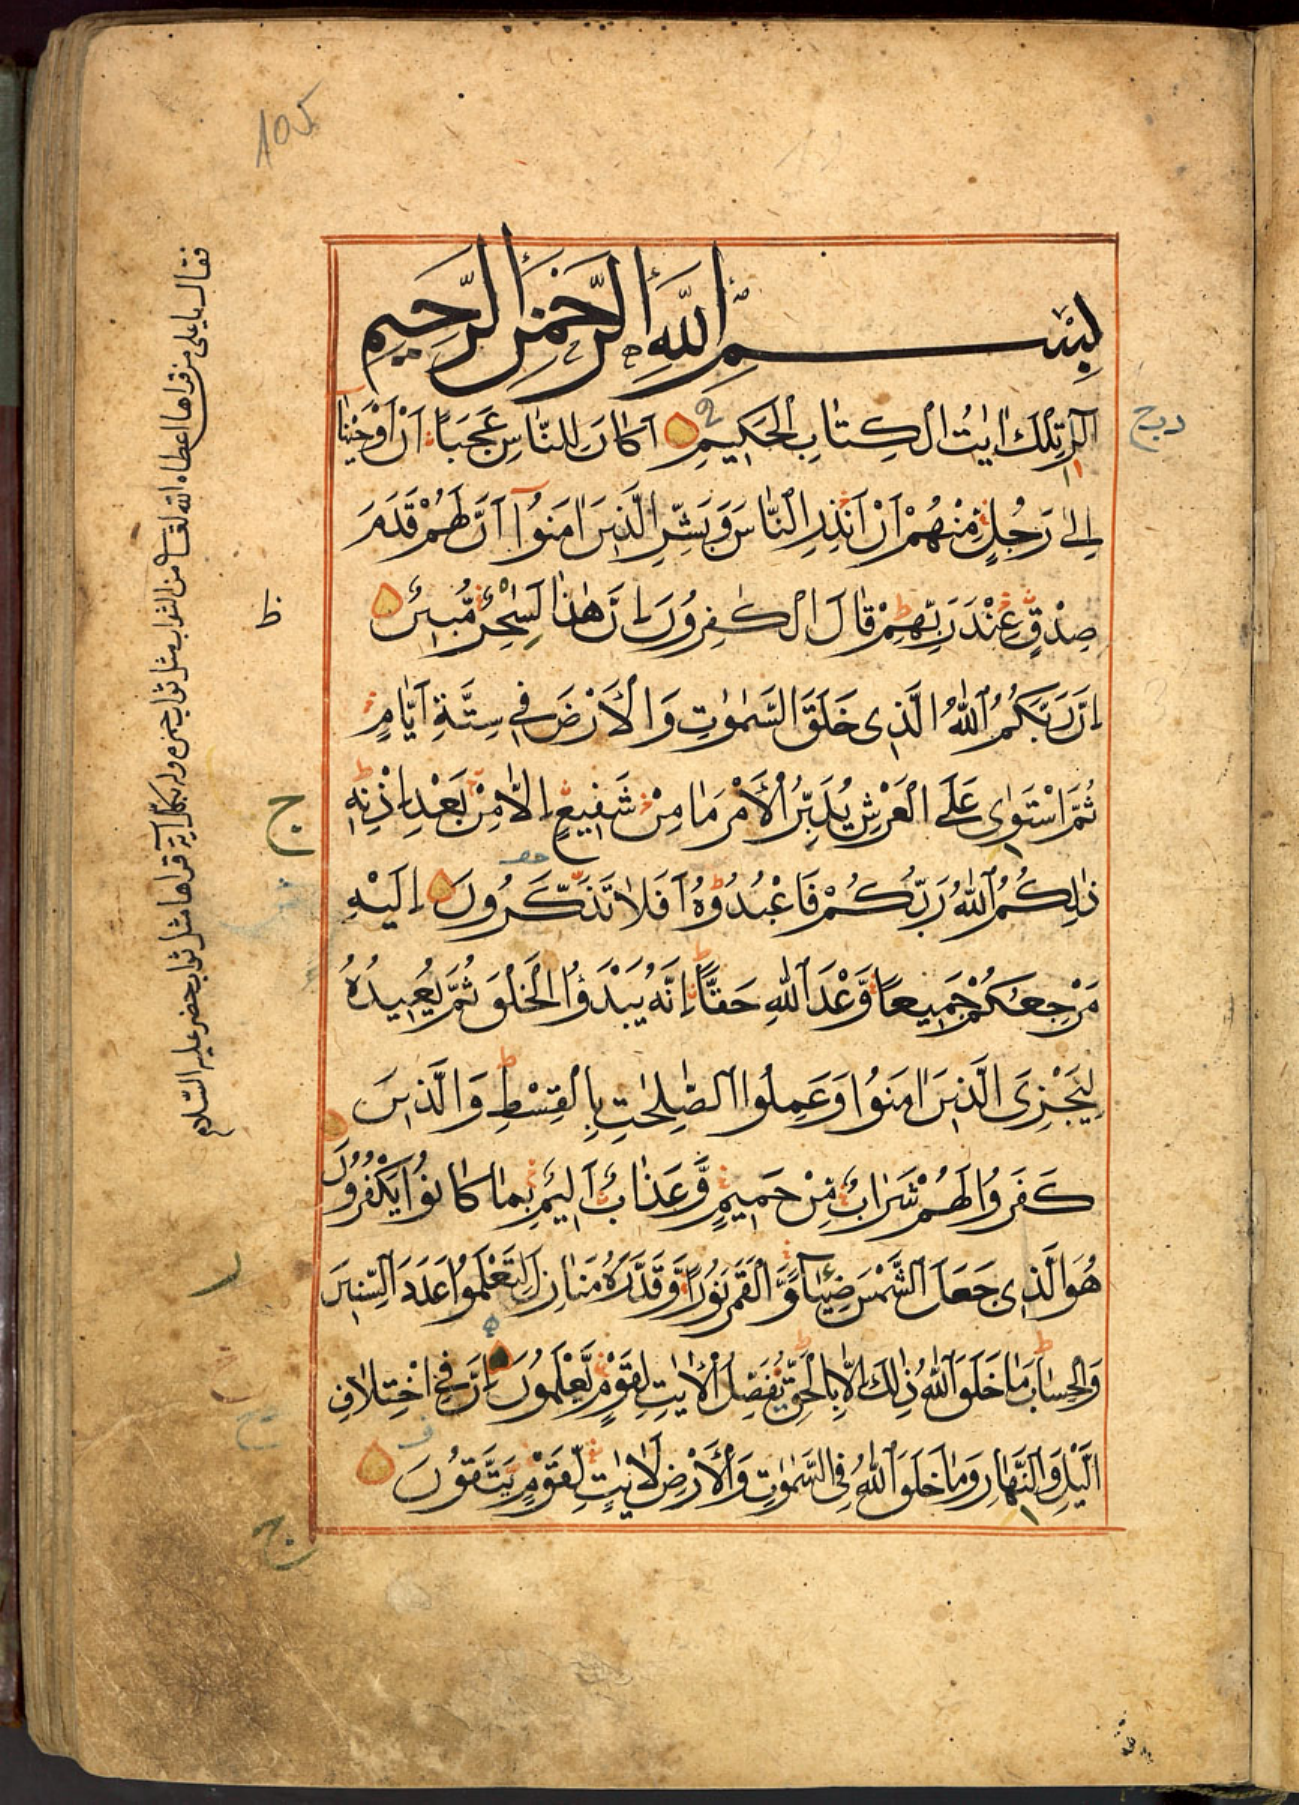 105
بِسْمِ اللّٰهِ الرَّحْمٰنِ الرَّحِيمِ
الٓرٰ تِلْكَ اٰيٰتُ الْكِتٰابِ الْحَكِيمِ اَكَانَ لِلنَّاسِ عَجَبًا اَنْ اَوْحَيْنَا
اِلٰى رَجُلٍ مِنْهُمْ اَنْ اَنْذِرِ النَّاسَ وَبَشِّرِ الَّذِينَ اٰمَنُوٓا اَنَّ لَهُمْ قَدَمَ
صِدْقٍ عِنْدَ رَبِّهِمْ قَالَ الْكٰفِرُونَ اِنَّ هٰذَا لَسٰحِرٌ مُّبِينٌ
اِنَّ رَبَّكُمُ اللّٰهُ الَّذِى خَلَقَ السَّمٰوٰتِ وَالْاَرْضَ فِى سِتَّةِ اَيَّامٍ
ثُمَّ اسْتَوٰى عَلَى الْعَرْشِ يُدَبِّرُ الْاَمْرَ مَا مِنْ شَفِيعٍ اِلَّا مِنْ بَعْدِ اِذْنِهِ
ذٰلِكُمُ اللّٰهُ رَبُّكُمْ فَاعْبُدُوهُ اَفَلَا تَذَكَّرُونَ اِلَيْهِ
مَرْجِعُكُمْ جَمِيعًا وَّعْدَ اللّٰهِ حَقًّا اِنَّهُ يَبْدَؤُا الْخَلْقَ ثُمَّ يُعِيدُهُ
لِيَجْزِىَ الَّذِينَ اٰمَنُوا وَعَمِلُوا الصّٰلِحٰتِ بِالْقِسْطِ وَالَّذِينَ
كَفَرُوا لَهُمْ شَرَابٌ مِّنْ حَمِيمٍ وَّعَذَابٌ اَلِيمٌ بِمَا كَانُوا يَكْفُرُونَ
هُوَ الَّذِى جَعَلَ الشَّمْسَ ضِيَآءً وَّالْقَمَرَ نُورًا وَّقَدَّرَهُ مَنَازِلَ لِتَعْلَمُوا عَدَدَ السِّنِينَ
وَالْحِسَابَ مَا خَلَقَ اللّٰهُ ذٰلِكَ اِلَّا بِالْحَقِّ يُفَصِّلُ الْاٰيٰتِ لِقَوْمٍ يَّعْلَمُونَ اِنَّ فِى اخْتِلَافِ
الَّيْلِ وَالنَّهَارِ وَمَا خَلَقَ اللّٰهُ فِى السَّمٰوٰتِ وَالْاَرْضِ لَاٰيٰتٍ لِّقَوْمٍ يَتَّقُونَ
فقال يا على من قراها اعطاه الله تعالى من الثواب مثل ثواب حمزه وله بكل آية قراها مثل ثواب خضر عليه السلام